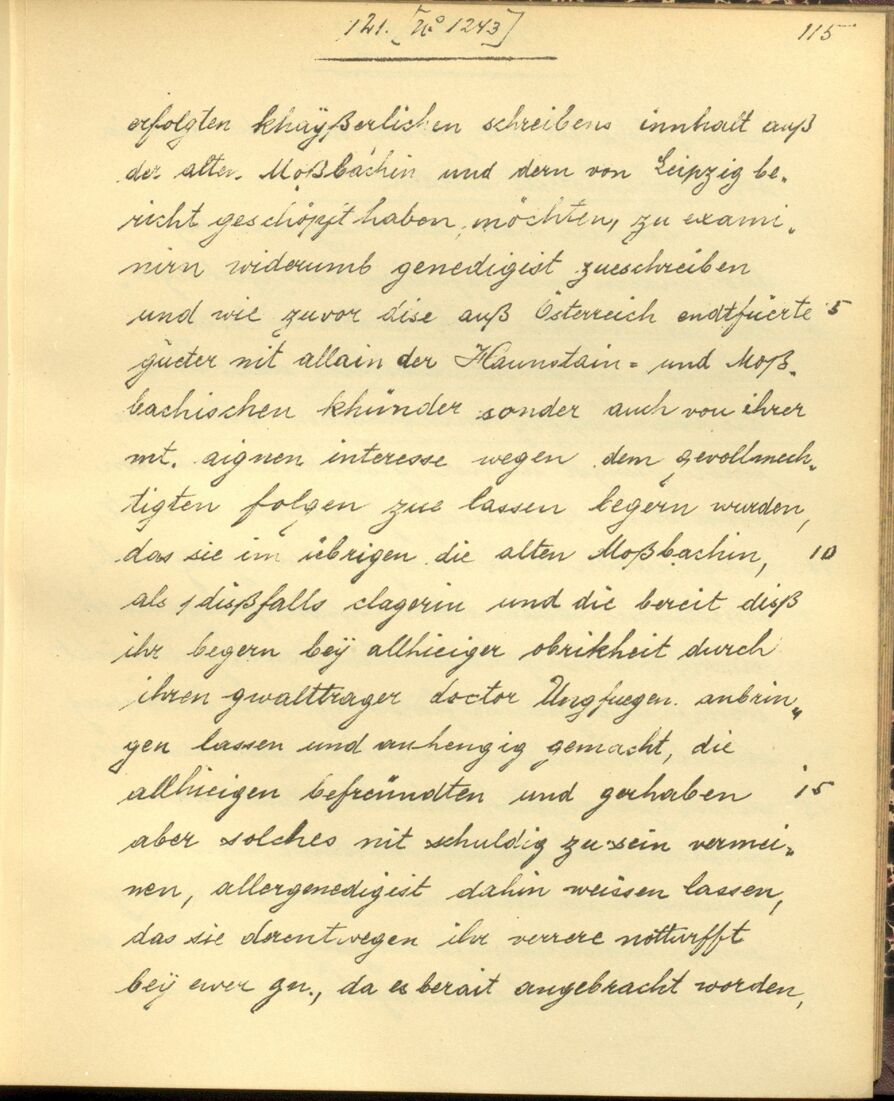 121. [No 1243]
115
erfolgten khaÿßerlichen schreibens innhalt auß
der alten Moßbachin und dern von Leipzig be„
richt geschöpft haben möchten, zu exami„
nirn widerumb genedigist zueschreiben
und wie zuvor dise auß Österreich endtfüerte 5
güeter nit allain der Haunstain= und Moß„
bachischen khünder sonder auch von ihrer
mt. aignen interesse wegen dem gevollmech„
tigten folgen zue lassen begern wurden,
das sie im übrigen die alten Moßbachin, 10
als dißfalls clagerin und die bereit diß
ihr begern beÿ allhieiger obrikheit durch
ihren gwalttrager doctor Ungfuegen anbrin„
gen lassen und anhengig gemacht, die
allhieigen befreündten und gerhaben 15
aber solches nit schuldig zu sein vermei„
nen, allergenedigist dahin weissen lassen,
das sie derentwegen ihr verrere notturfft
beÿ ewer gn., da es berait angebracht worden,